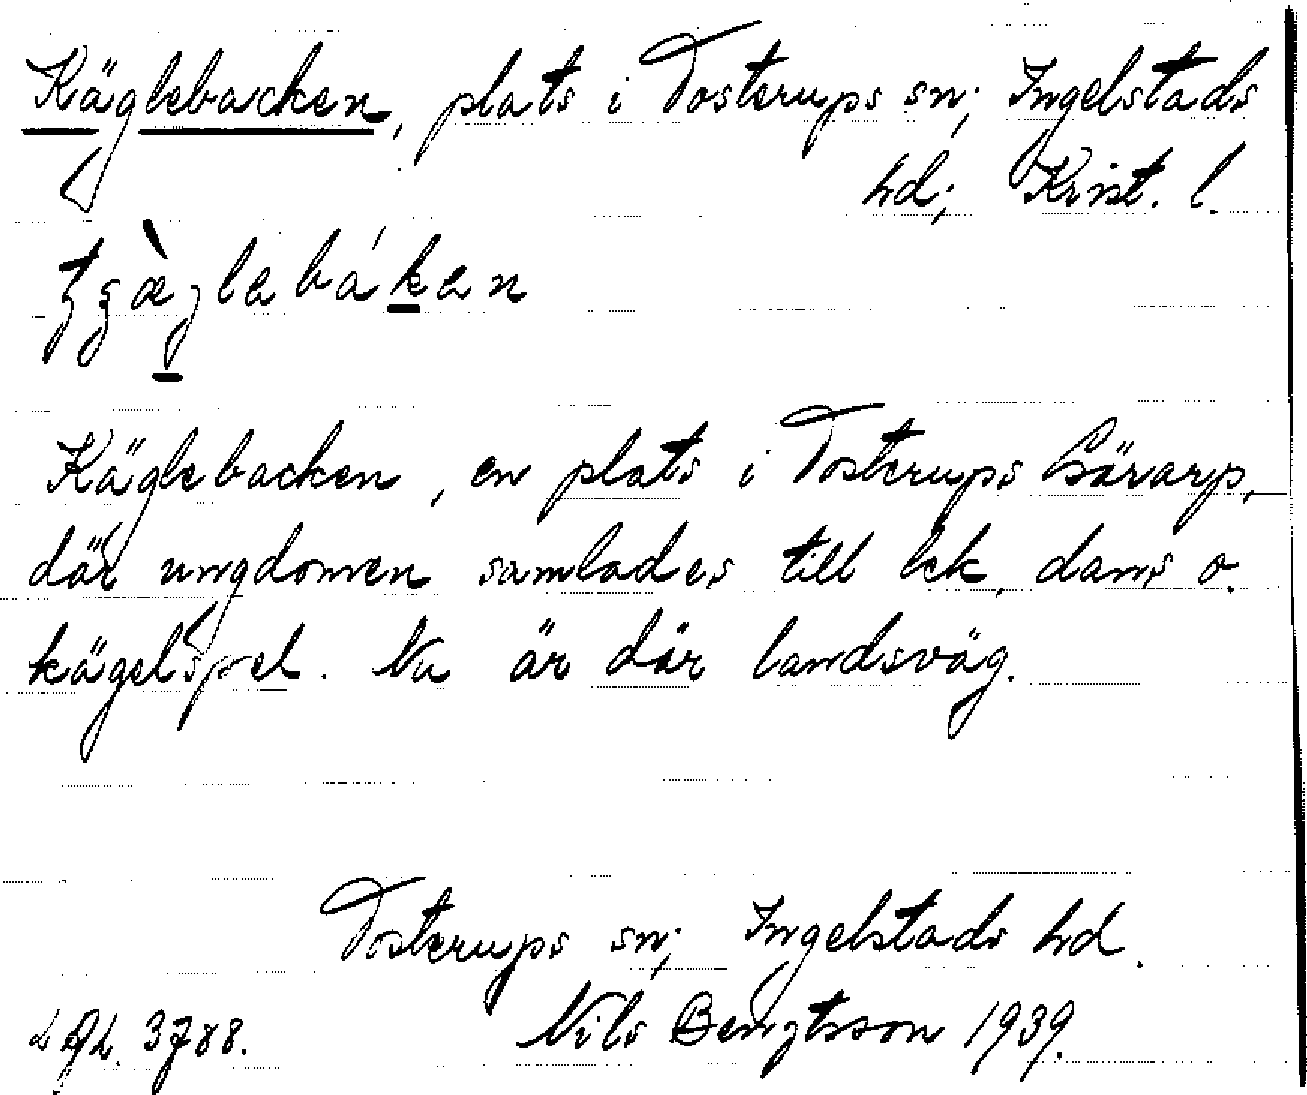 Käglebacken, plats i Tosterups sn; Ingelstads
hd; Krist. l.
Käglebacken, en plats i Tosterups Gärarp,
där ungdomen samlades till lek, dans o.
kägelspel. Nu är där landsväg.
Tosterups sn; Ingelstads hd.
3788. Nils Bengtsson 1939.